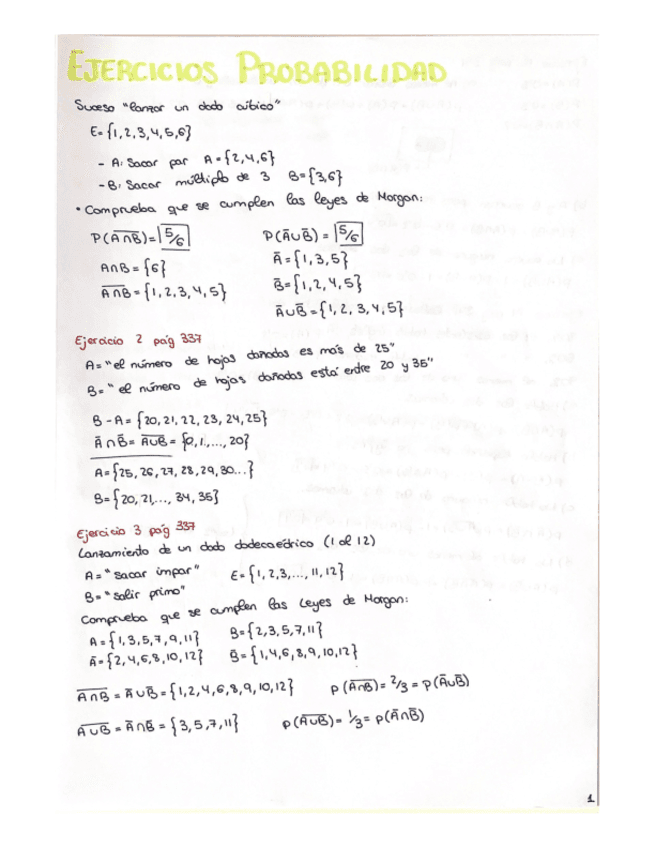 EJERCICIOS PROBABILIDAD
Suceso "lanzar un dado cúbico"
E={1,2,3,4,5,6}
- A: Sacar par A={2,4,6}
- B: Sacar múltiplo de 3 B={3,6}
• Comprueba que se cumplen las leyes de Morgan:
P(A̅∩̅B̅)=5/6 P(A̅∪B̅)=5/6
A∩B={6} A̅={1,3,5}
A̅∩̅B̅={1,2,3,4,5} B̅={1,2,4,5}
A̅∪B̅={1,2,3,4,5}
Ejercicio 2 pág 337
A="el número de hojas dañadas es más de 25"
B="el número de hojas dañadas está entre 20 y 35"
B-A={20,21,22,23,24,25}
A̅∩B̅=A̅∪̅B̅={0,1,...,20}
A={25,26,27,28,29,30...}
B={20,21,...,34,35}
Ejercicio 3 pág 337
Lanzamiento de un dado dodecaédrico (1 al 12)
A="sacar impar" E={1,2,3,...,11,12}
B="salir primo"
Comprueba que se cumplen las Leyes de Morgan:
A={1,3,5,7,9,11} B={2,3,5,7,11}
A̅={2,4,6,8,10,12} B̅={1,4,6,8,9,10,12}
A̅∩̅B̅=A̅∪B̅={1,2,4,6,8,9,10,12} p(A̅∩̅B̅)=2/3=p(A̅∪B̅)
A̅∪̅B̅=A̅∩B̅={3,5,7,11} p(A̅∪̅B̅)=1/3=p(A̅∩B̅)
1